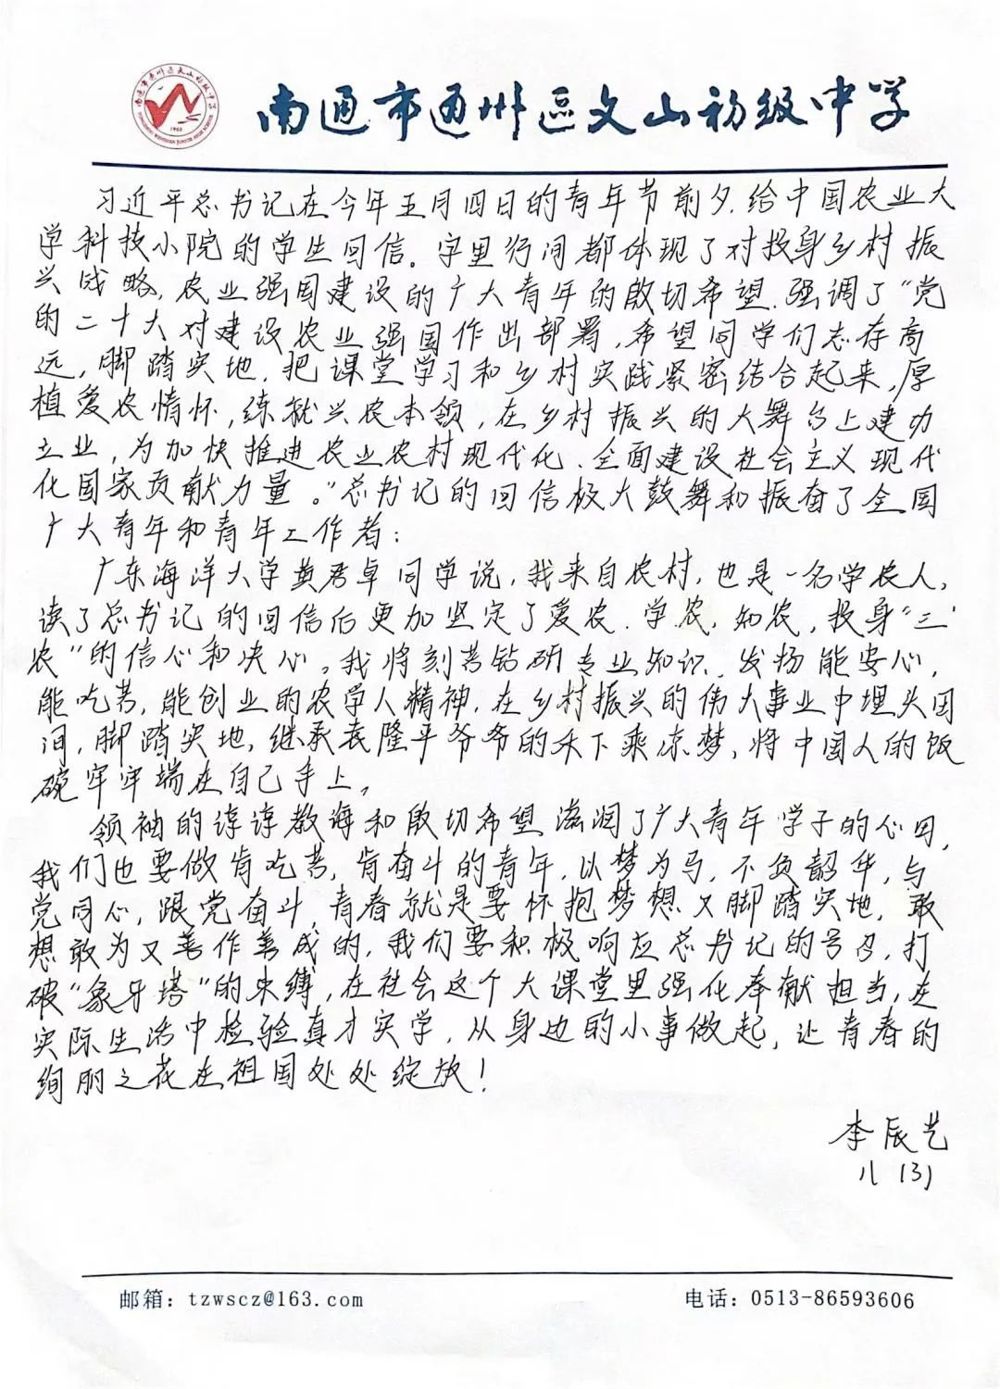 南通市通州区文山初级中学
习近平总书记在今年五月四日的青年节前夕,给中国农业大
学科技小院的学生回信。字里行间都体现了对投身乡村振
兴战略,农业强国建设的广大青年的殷切希望.强调了“党
的二十大对建设农业强国作出部署,希望同学们志存高
远,脚踏实地,把课堂学习和乡村实践紧密结合起来,厚
植爱农情怀,练就兴农本领,在乡村振兴的大舞台上建功
立业,为加快推进农业农村现代化、全面建设社会主义现代
化国家贡献力量。”总书记的回信极大鼓舞和振奋了全国
广大青年和青年工作者:
广东海洋大学黄君卓同学说,我来自农村,也是一名学农人,
读了总书记的回信后更加坚定了爱农、学农,知农,投身“三
农”的信心和决心。我将刻苦钻研专业知识,发扬能安心,
能吃苦,能创业的农学人精神,在乡村振兴的伟大事业中埋头田
间,脚踏实地,继承袁隆平爷爷的禾下乘凉梦,将中国人的饭
碗牢牢端在自己手上。
领袖的谆谆教诲和殷切希望滋润了广大青年学子的心田,
我们也要做肯吃苦,肯奋斗的青年,以梦为马,不负韶华,与
党同心,跟党奋斗,青春就是要怀抱梦想又脚踏实地,敢
想敢为又善作善成的,我们要积极响应总书记的号召,打
破“象牙塔”的束缚,在社会这个大课堂里强化奉献担当,走
实际生活中检验真才实学,从身边的小事做起,让青春的
绚丽之花在祖国处处绽放!
李辰艺
八(3)
邮箱:tzwscz@163.com 电话:0513-86593606